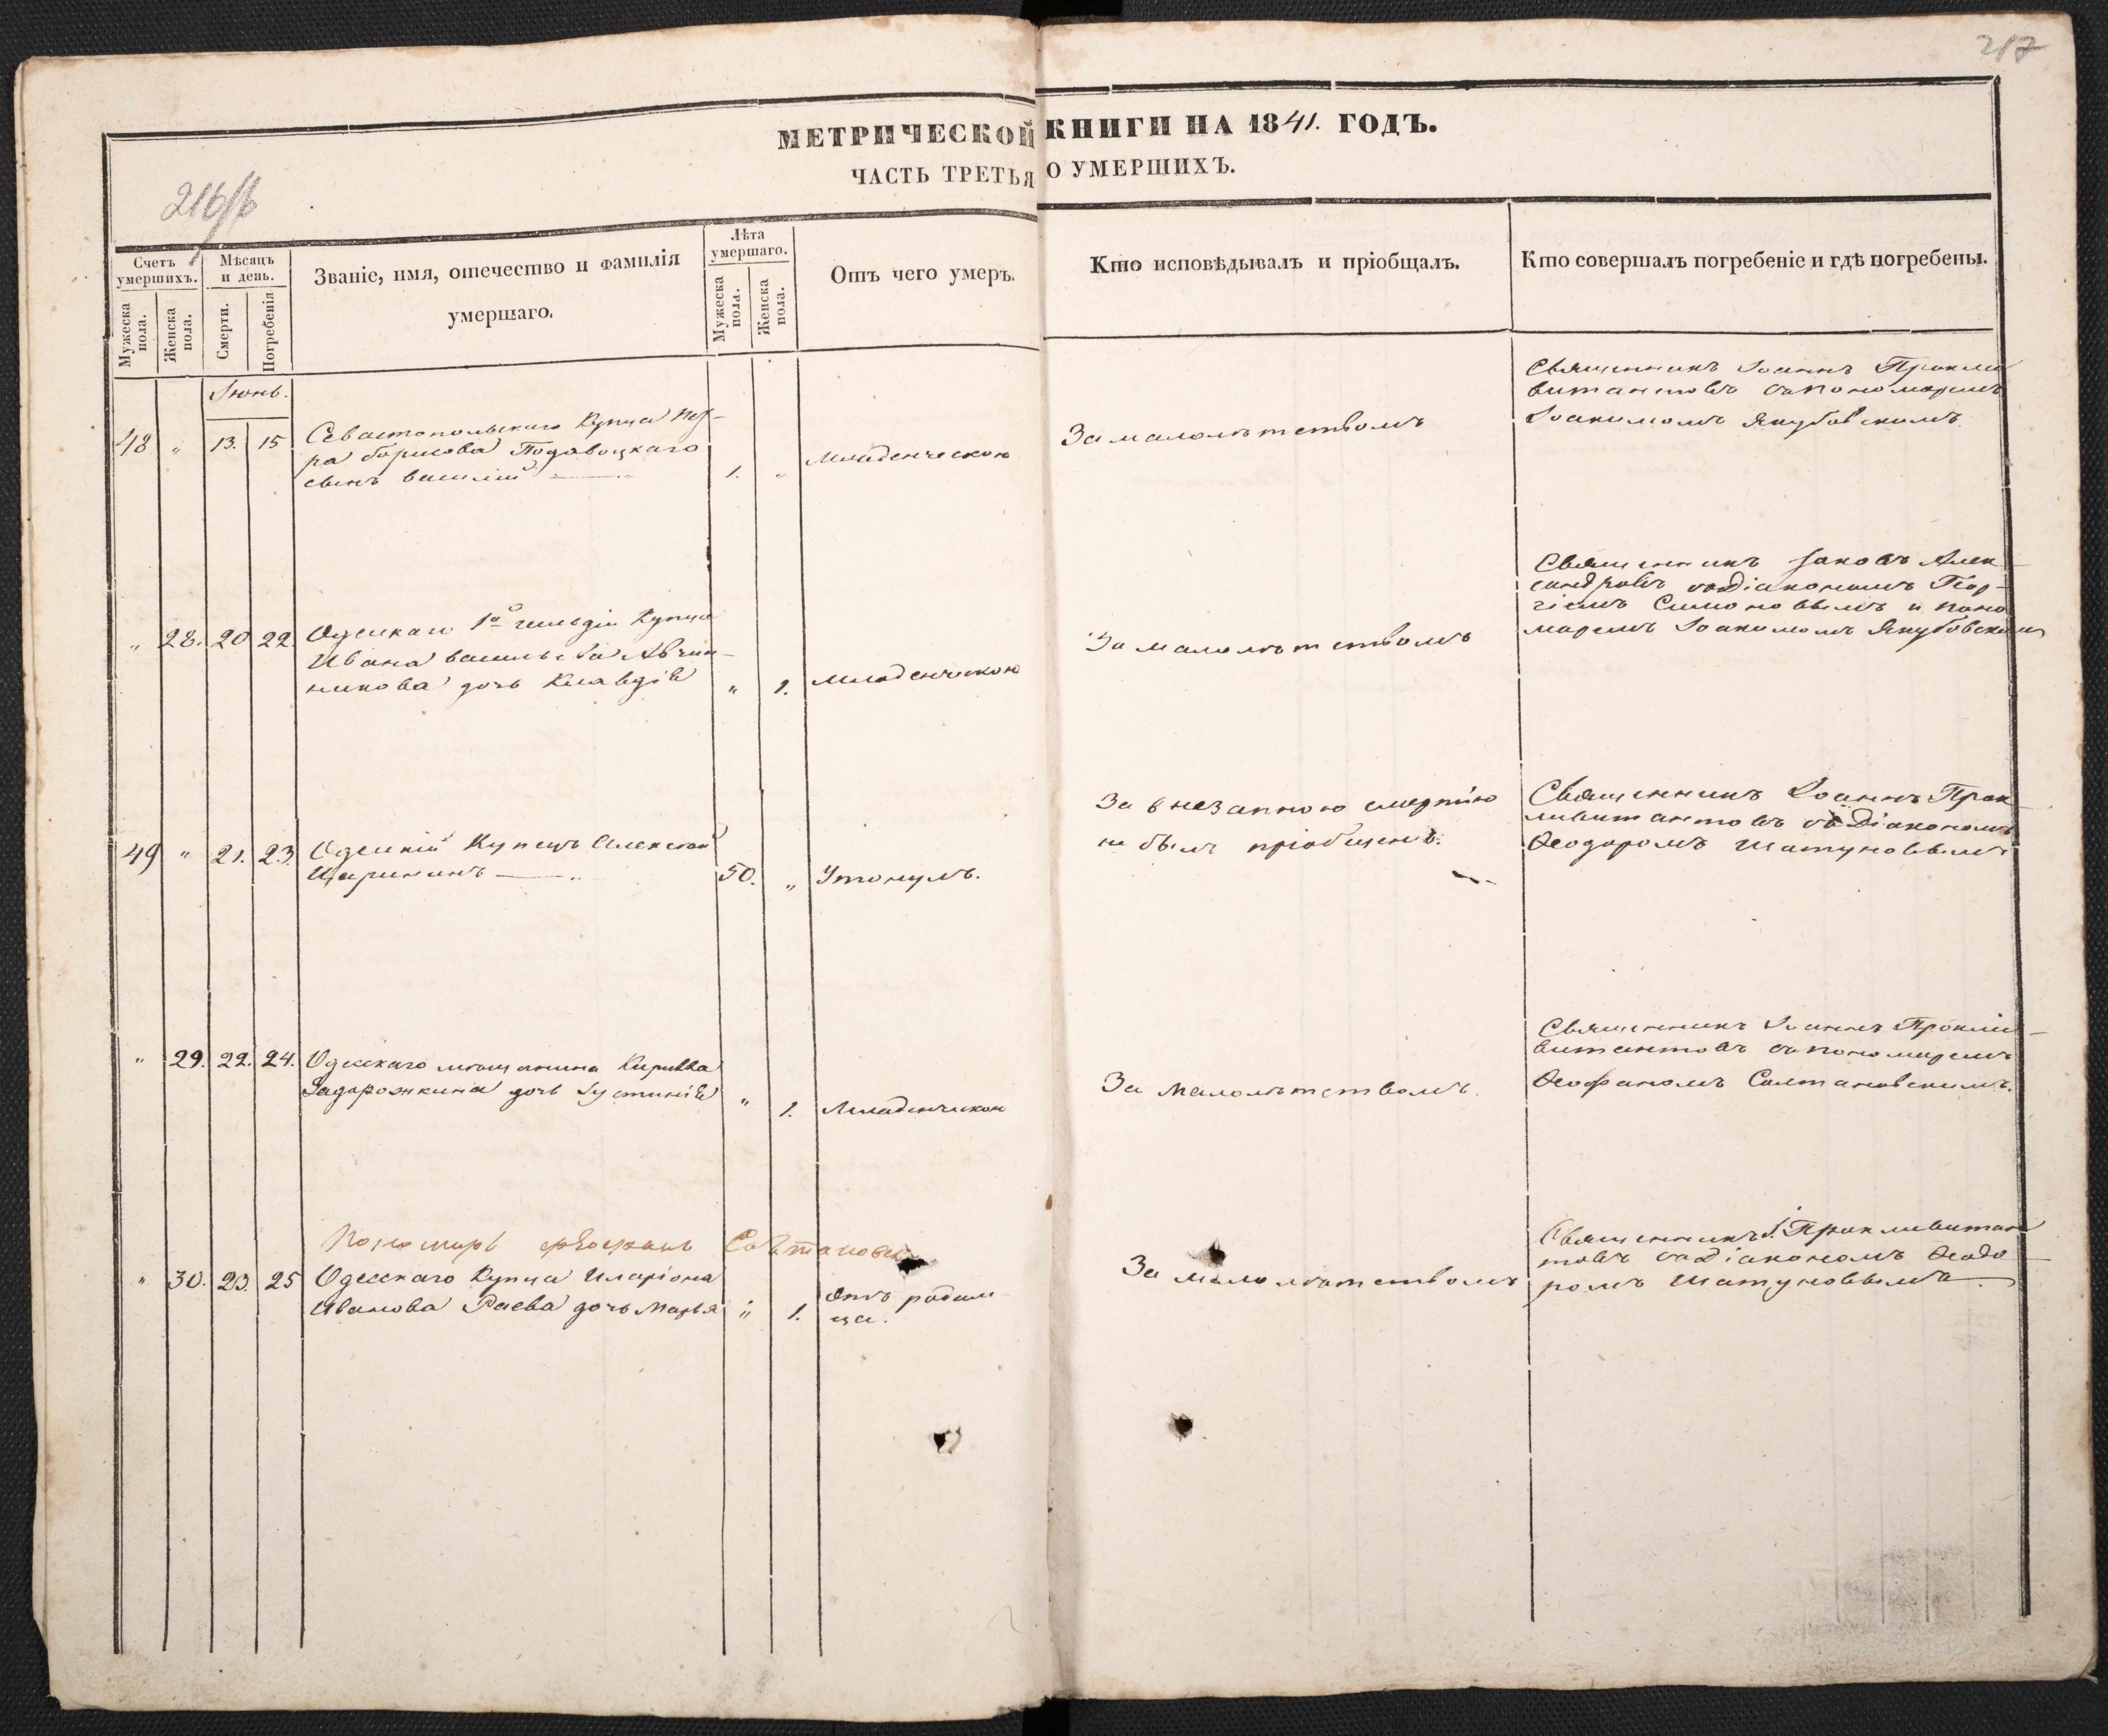 217
МЕТРИЧЕСКОЙ КНИГИ НА 1841. ГОДЪ.
ЧАСТЬ ТРЕТЬЯ О УМЕРШИХЪ.
216
Счетъ умершихъ.
Мужеска пола.
Женска пола.
Мѣсяцъ и день.
Смерти.
Погребенія
Званіе, имя, отечество и фамилія
умершаго.
Лѣта умершаго.
Мужеска пола.
Женска пола.
Отъ чего умеръ.
Кто исповѣдывалъ и пріобщалъ.
Кто совершалъ погребеніе и гдѣ погребены.
Іюнь.
48 „ 13. 15
Севастопольскаго Купца Пет-
ра Борисова
сынъ Василій
1. „
Младенческою
За малолѣтствомъ
Священникъ Іоаннъ Прокли
витантовъ съ пономаремъ
Іоакимомъ Якубовскимъ.
„ 28. 20 22.
Одескаго 1й гильдіи Купца
Ивана Васильева Авчин-
никова дочь Клавдія
„ 1.
Младенческою
За малолѣтствомъ
Священникъ Іаковъ Алек-
сандровъ съ Діакономъ Геор-
гіемъ Симоновымъ и поно
маремъ Іоакимомъ Якубовским
49 „ 21. 23.
Одескій Купецъ Алексѣй
Щаринъ
50. „
Утонулъ.
За внезапною смертію
не былъ пріобщенъ.
Священникъ Іоаннъ Прок
ливитантовъ съ Діакономъ
Ѳеодоромъ Шатуновымъ
„ 29. 22. 24.
Одесскаго мѣщанина Кирилла
Задорожкина дочь Іустинія
„ 1.
Младенческою
За малолѣтствомъ.
Священникъ Іоаннъ Прокли-
витантовъ съ пономаремъ
Ѳеофаномъ Салтановскимъ.
Пономарь Ѳеофанъ Салтановск
„ 30. 23. 25
Одесскаго Купца Иларіона
Иванова Раева дочь Марья
„ 1.
Отъ родим-
ца.
За малолѣтствомъ
Священникъ І. Прокливитан
товъ съ Діакономъ Ѳеодо-
ромъ Шатуновымъ.